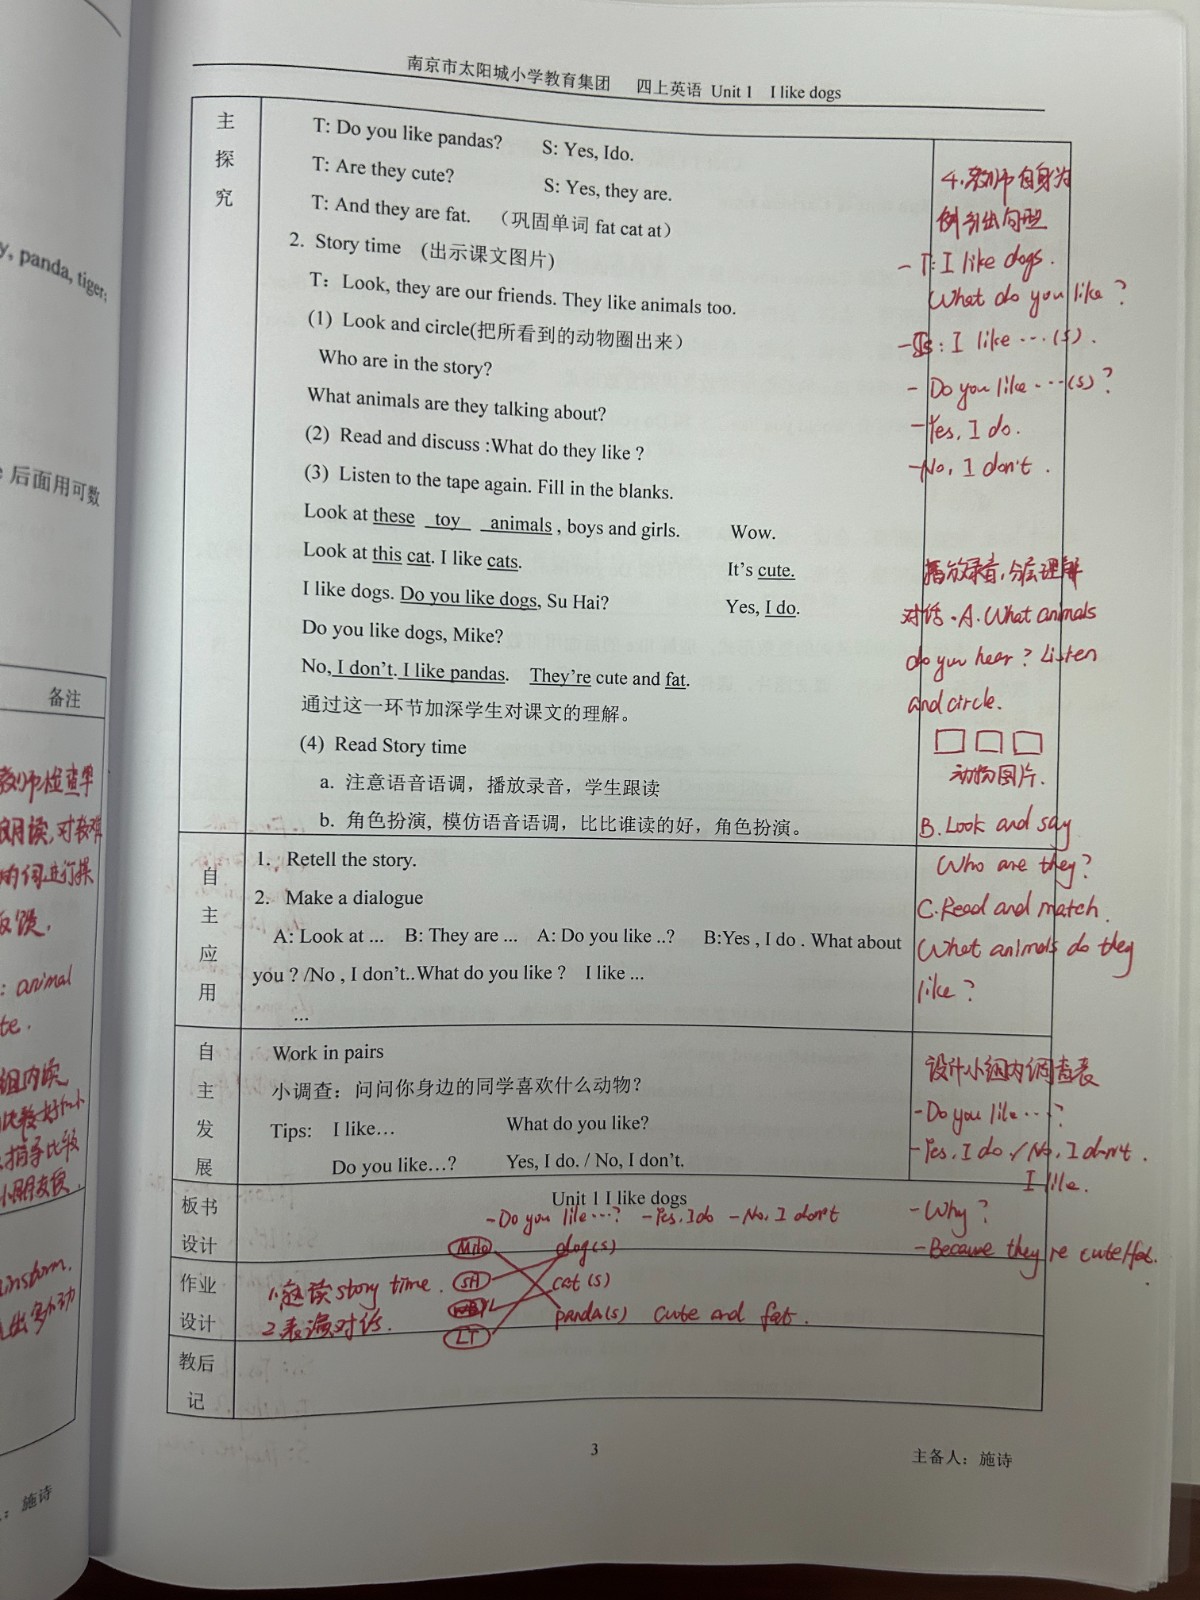 南京市太阳城小学教育集团 四上英语 Unit 1 I like dogs
主
探
究
T: Do you like pandas? S: Yes, Ido.
T: Are they cute? S: Yes, they are.
T: And they are fat. （巩固单词 fat cat at）
2. Story time (出示课文图片)
T：Look, they are our friends. They like animals too.
(1) Look and circle(把所看到的动物圈出来）
Who are in the story?
What animals are they talking about?
(2) Read and discuss :What do they like ?
(3) Listen to the tape again. Fill in the blanks.
Look at these toy animals , boys and girls. Wow.
Look at this cat. I like cats. It's cute.
I like dogs. Do you like dogs, Su Hai? Yes, I do.
Do you like dogs, Mike?
No, I don't. I like pandas. They're cute and fat.
通过这一环节加深学生对课文的理解。
(4) Read Story time
a. 注意语音语调，播放录音，学生跟读
b. 角色扮演, 模仿语音语调，比比谁读的好，角色扮演。
4.教师自身为
例引出句型
- T: I like dogs.
What do you like ?
-Ss: I like ···(s).
- Do you like ···(s)?
-Yes, I do.
-No, I don't .
播放录音,分层理解
对话.A.What animals
do you hear ? Listen
and circle.
动物图片.
B. Look and say
Who are they?
C.Read and match.
What animals do they
like ?
自
主
应
用
1. Retell the story.
2. Make a dialogue
A: Look at ... B: They are ... A: Do you like ..? B:Yes , I do . What about
you ? /No , I don't..What do you like ? I like ...
...
自
主
发
展
Work in pairs
小调查：问问你身边的同学喜欢什么动物?
Tips: I like… What do you like?
Do you like…? Yes, I do. / No, I don't.
设计小组内调查表
-Do you like ···?
-Yes, I do. / No, I don't.
I like.
-Why?
-Because they're cute/fat.
板书
设计
Unit 1 I like dogs
-Do you like ···? -Yes, I do -No, I don't
Mike dog(s)
SH cat(s)
YL panda(s) cute and fat.
LT
作业
设计
1. 读story time.
2.表演对话.
教后
记
3
主备人：施诗
y, panda, tiger;
后面用可数
备注
教师检查学
朗读,对较难
的词进行操
反馈.
: animal
te.
组内读,
小朋友读.
施诗